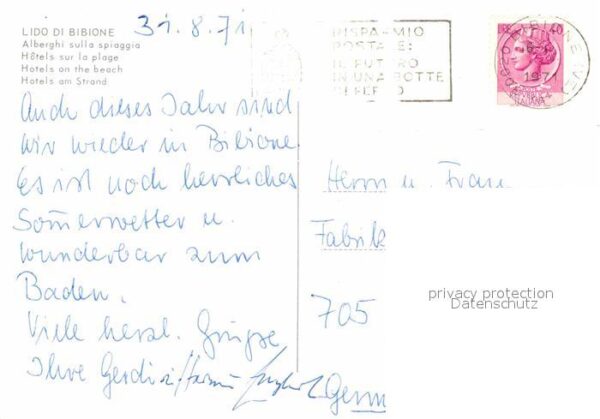 LIDO DI BIBIONE
Alberghi sulla spiaggia
Hôtels sur la plage
Hotels on the beach
Hotels am Strand
31.8.71
RISPARMIO
POSTALE:
IL FUTURO
IN UNA BOTTE
DI FERRO
40
BIBIONE (VE)
1971
Auch dieses Jahr sind
wir wieder in Bibione
Es ist noch herrliches
Sommerwetter u.
wunderbar zum
Baden.
Viele herzl. Grüße
Ihre
Herrn u. Frau
Fabrik
705
Germ
privacy protection
Datenschutz